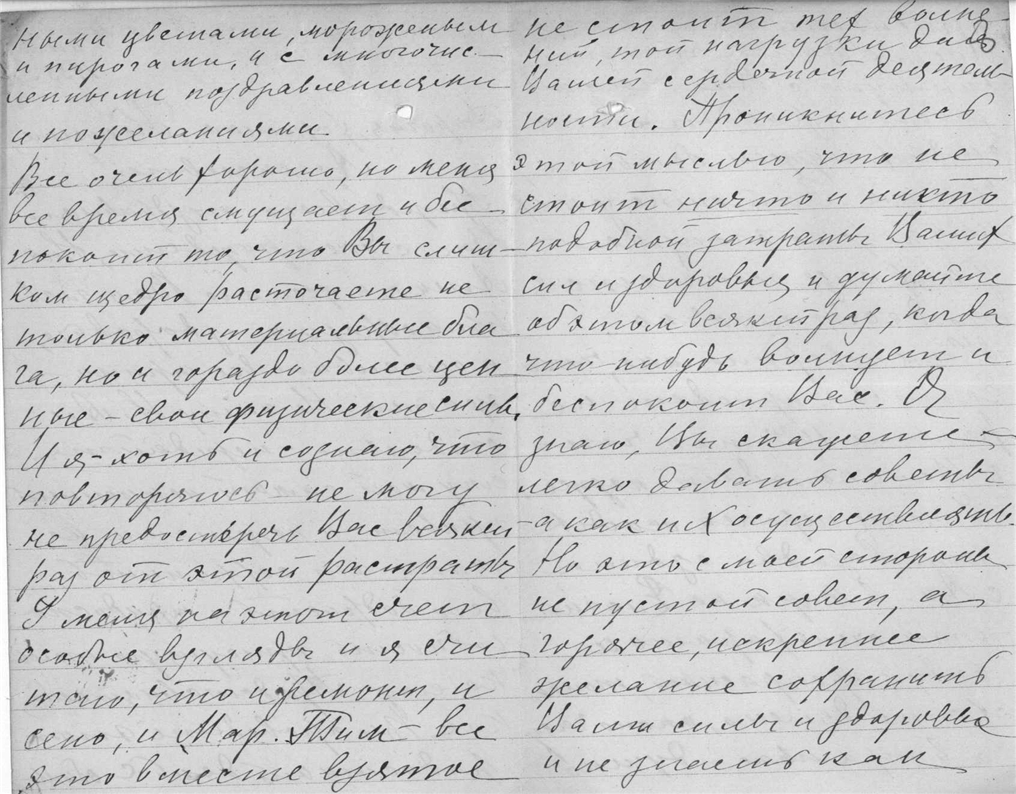 ными цветами, мороженым
и пирогами, и с многочис-
ленными поздравлениями
и пожеланиями.
Все очень хорошо, но меня
все время смущает и бес-
покоит то, что Вы слиш-
ком щедро расточаете не
только материальные бла
га, но и гораздо более цен
ные – свои физические силы.
И я – хоть и сознаю, что
повторяюсь – не могу
не предостеречь Вас всякий
раз от этой растраты
У меня на этот счет
особые взгляды и я счи
таю, что и ремонт, и
сено, и Мар. Тим – все
это вместе взятое
не стоит тех волне-
ний, той нагрузки для
Вашей сердечной деятель
ности. Проникнитесь
этой мыслью, что не
стоит ничто и никто
подобной затраты Ваших
сил и здоровья и думайте
об этом всякий раз, когда
что-нибудь волнует и
беспокоит Вас. Я
знаю, Вы скажете –
легко давать советы
а как их осуществлять.
Но это с моей стороны
не пустой совет, а
горячее, искреннее
желание сохранить
Ваши силы и здоровье
и не знаешь как